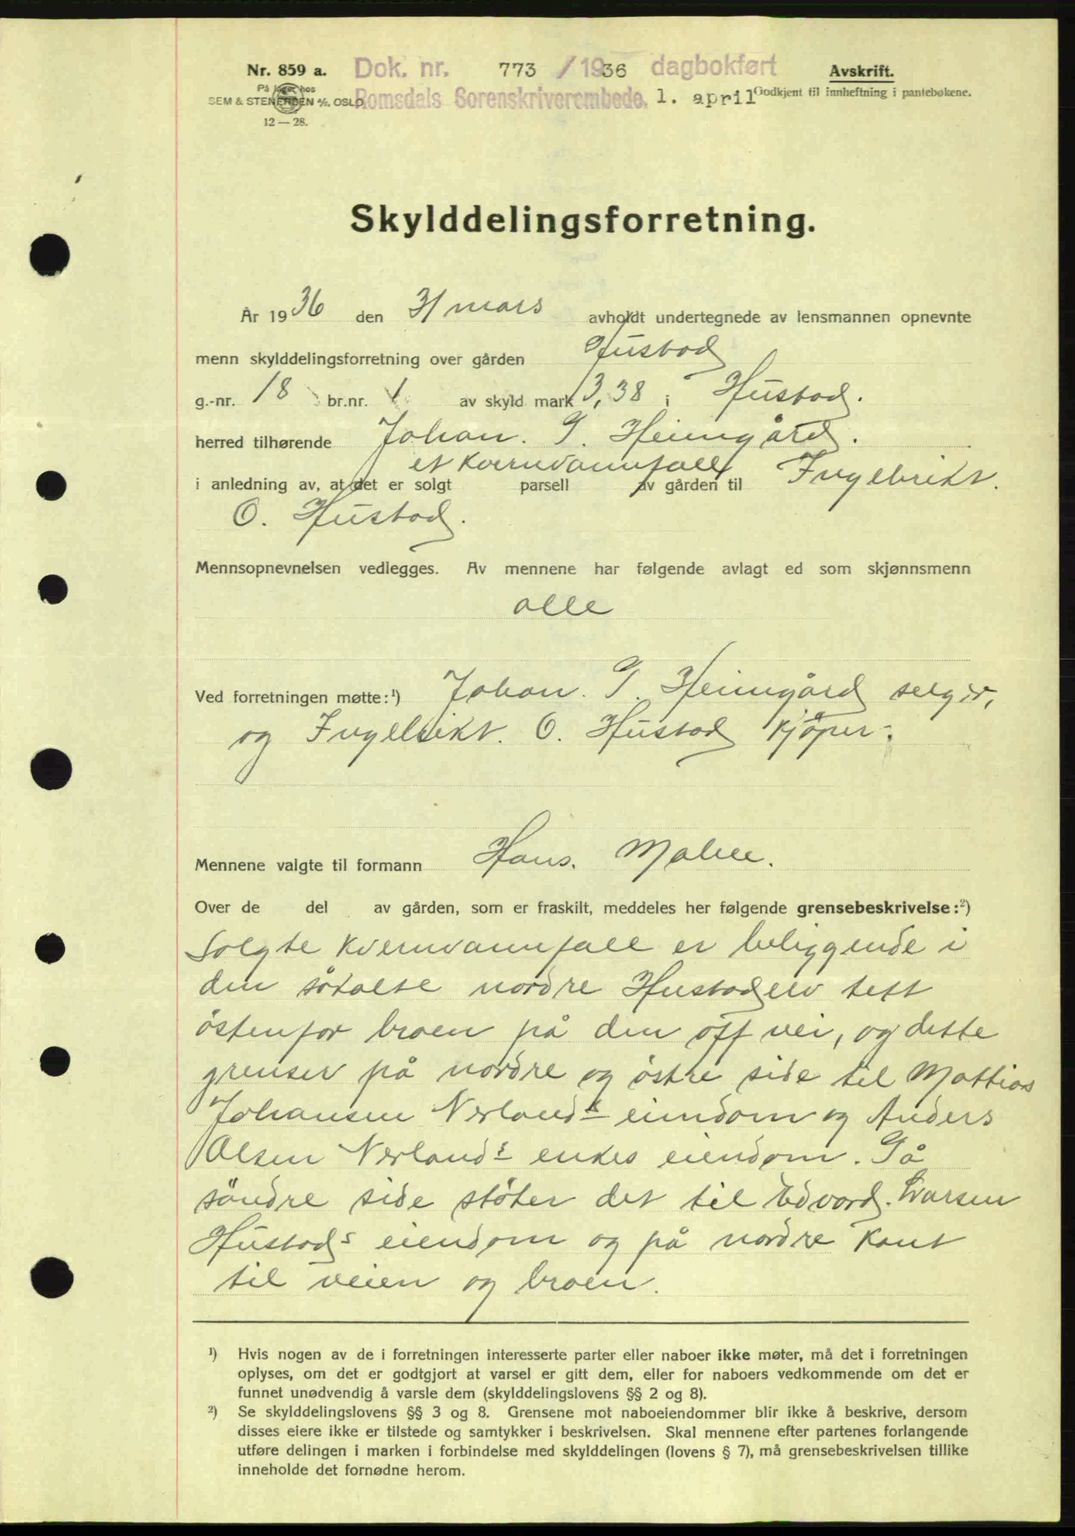 Nr. 859 a.
På lager hos
SEM & STENERSEN A/S, OSLO.
12 — 28.
Dok. nr. 773 / 1936 dagbokført
Romsdals Sorenskriverembede, 1. april
Avskrift.
Godkjent til innheftning i pantebøkene.
Skylddelingsforretning.
År 1936 den 31 mars avholdt undertegnede av lensmannen opnevnte
menn skylddelingsforretning over gården Hustad
g.-nr. 18 br.nr. 1 av skyld mark 3,38 i Hustad.
herred tilhørende Johan. G. Heimgård.
i anledning av, at det er solgt et kvernvannfall parsell av gården til Ingebrikt.
O. Hustad.
Mennsopnevnelsen vedlegges. Av mennene har følgende avlagt ed som skjønnsmenn
alle
Ved forretningen møtte: ¹) Johan. G. Heimgård selger,
og Ingebrikt. O. Hustad kjøper.
Mennene valgte til formann Hans. Malme.
Over de del av gården, som er fraskilt, meddeles her følgende grensebeskrivelse: ²)
Solgte kvernvannfall er beliggende i
den såkalte nordre Hustadelv tett
østenfor broen på den off vei, og dette
grenser på nordre og østre side til Mattias
Johansen Nerlands eiendom og Anders
Olsen Nerlands enkes eiendom. På
søndre side støter det til Edvard. Larsen
Hustads eiendom og på nordre kant
til veien og broen.
¹) Hvis nogen av de i forretningen interesserte parter eller naboer ikke møter, må det i forretningen
oplyses, om det er godtgjort at varsel er gitt dem, eller for naboers vedkommende om det er
funnet unødvendig å varsle dem (skylddelingslovens §§ 2 og 8).
²) Se skylddelingslovens §§ 3 og 8. Grensene mot naboeiendommer blir ikke å beskrive, dersom
disses eiere ikke er tilstede og samtykker i beskrivelsen. Skal mennene efter partenes forlangende
utføre delingen i marken i forbindelse med skylddelingen (lovens § 7), må grensebeskrivelsen tillike
inneholde det fornødne herom.